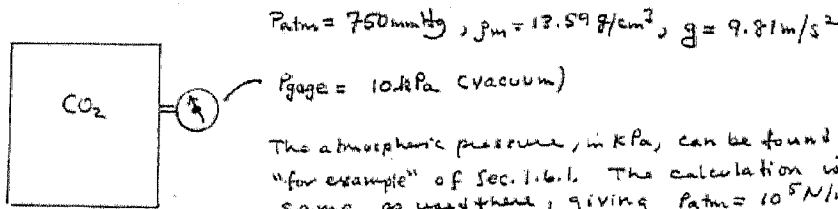 Patm = 750 mmHg, ρm = 13.59 g/cm³, g = 9.81 m/s²
CO₂
Pgage = 10 kPa (vacuum)
The atmospheric pressure, in kPa, can be found
"for example" of Sec. 1.6.1. The calculation
same as used there, giving Patm = 10⁵ N/